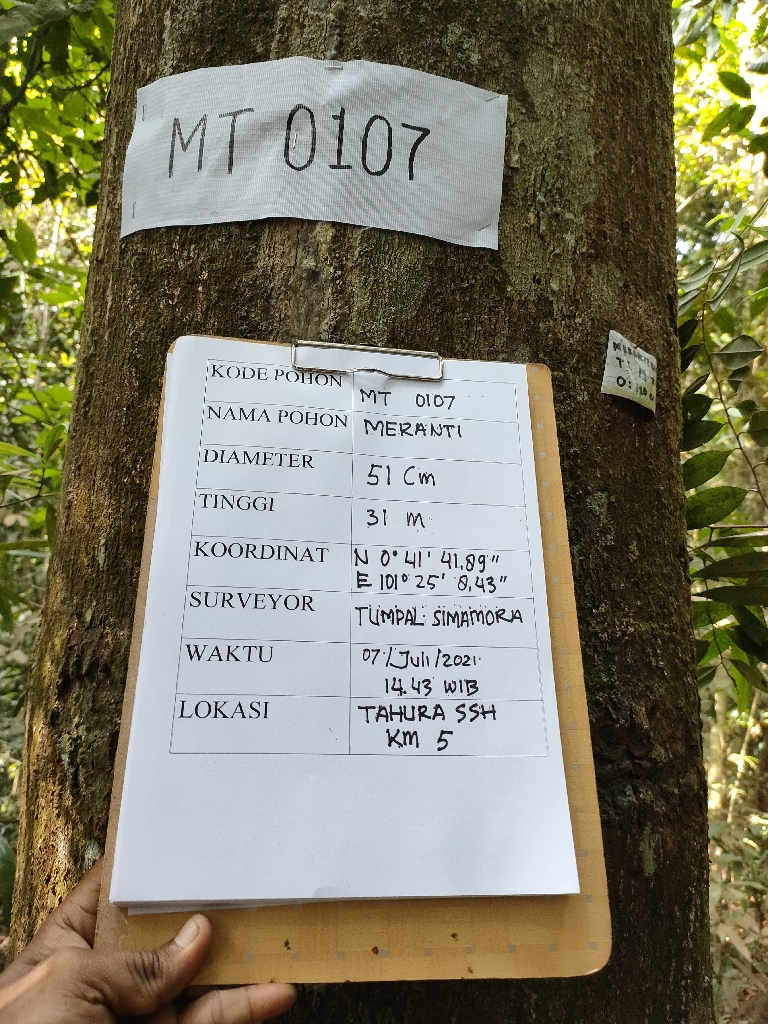 MT 0107
KODE POHON MT 0107
NAMA POHON MERANTI
DIAMETER 51 Cm
TINGGI 31 m
KOORDINAT N 0° 41' 41,89"
E 101° 25' 8,43"
SURVEYOR TUMPAL SIMAMORA
WAKTU 07/Juli/2021
14.43 WIB
LOKASI TAHURA SSH
KM 5